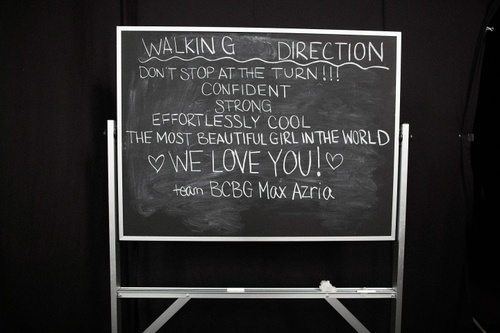 WALKING DIRECTION
DON'T STOP AT THE TURN!!!
CONFIDENT
STRONG
EFFORTLESSLY COOL
THE MOST BEAUTIFUL GIRL IN THE WORLD
♡ WE LOVE YOU! ♡
team BCBG Max Azria